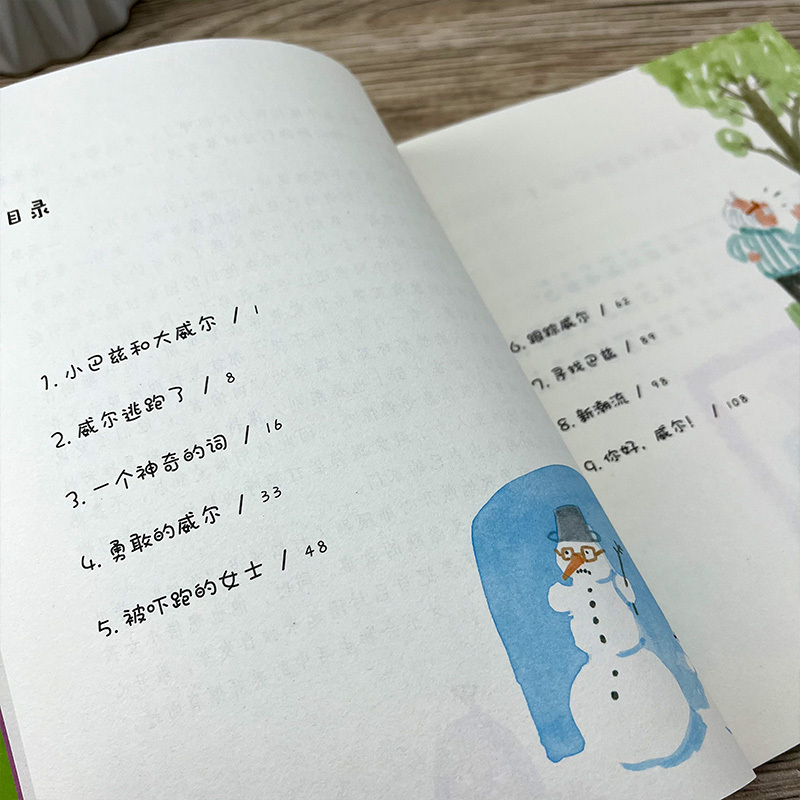 目录
1. 小巴兹和大威尔 / 1
2. 威尔逃跑了 / 8
3. 一个神奇的词 / 16
4. 勇敢的威尔 / 33
5. 被吓跑的女士 / 48
6. 跟踪威尔 / 62
7. 寻找巴兹 / 89
8. 新潮流 / 98
9. 你好，威尔！ / 108